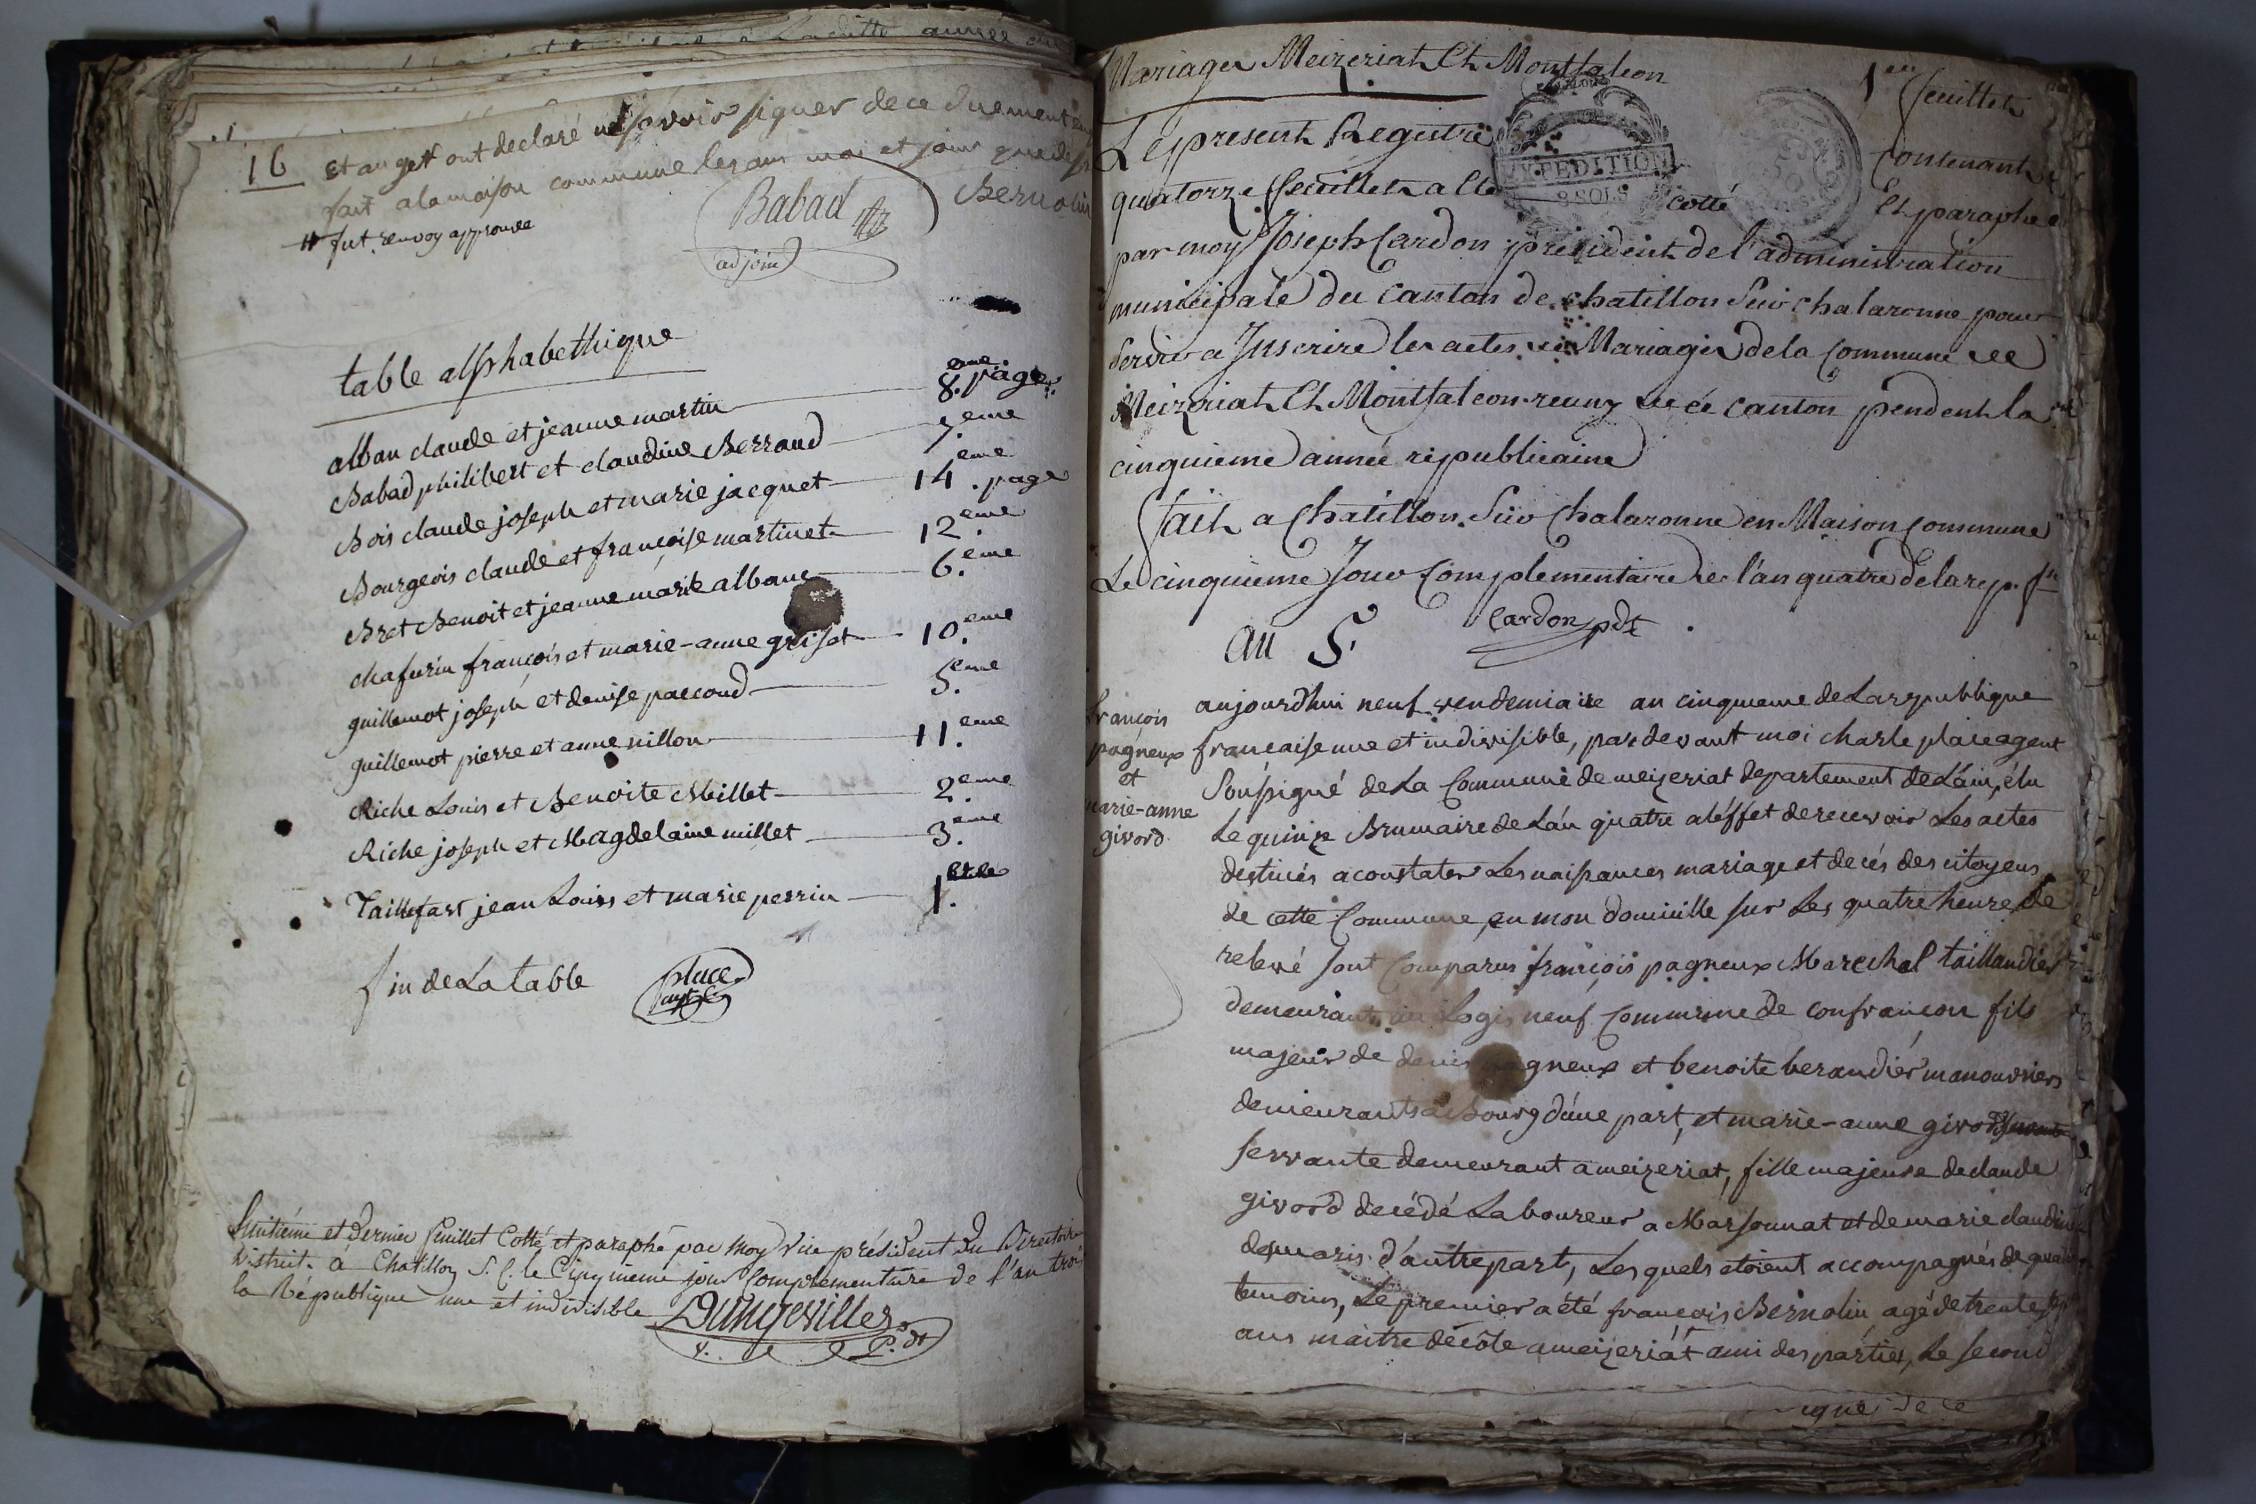 16
et anget ont declaré ne savoir signer de ce duement
fait a la maison commune les ans moi et jour que de
# fut renvoy approuvée
Babad
Bernolin
adjoint
table alphabethique
alban claude et jeanne martin 8.eme page
Babad philibert et claudine Berraud 7.eme
Bois claude joseph et marie jacquet 14.eme page
Bourgeois claude et françoise martinet 12.eme
Bret Benoit et jeanne marie albane 6.eme
chafurin françois et marie-anne griset 10.eme
guillemot joseph et denise paccoud 5.eme
guillemot pierre et anne nillon 11.eme
Riche Louis et Benoite Millet 2.eme
Riche joseph et Magdelaine millet 3.eme
Taillefart jean Louis et marie perrin 1.
fin de La table
place
agt
huitième et Dernier feuillet Cotté et paraphé par moy Vice président du Directoire
District à Chatillon S. C. le Cinquieme jour Complementaire de l'an trois
la République une et indivisible
P.dt
Mariages Meizeriah Et Montfalcon
1er feuillet
Le present Registre contenant
EXPEDITION
8 SOLS
quatorze feuillets a ete cotté Et paraphé
par moy Joseph Cardon president de l'administration
municipale du canton de chatillon Sur chalaronne pour
Servir a Inscrire les actes de Mariages de la Commune de
Meizeriah Et Montfalcon reuny de ce canton pendent la
cinquieme année republicaine
fait a Chatillon Sur Chalaronne en Maison Commune
Le cinquieme Jour Complementaire de l'an quatre de la rep. f
cardon pdt
an 5
françois
pagneux
et
marie-anne
givord
aujourd'hui neuf vendemiaire an cinquieme de La republique
francaise une et indivisible, par devant moi charle place agent
Soussigné de La Commune de meizeriat departement de L'ain, élu
Le quinze Brumaire de L'an quatre a l'éffet de recevoir Les actes
destinés a constater Les naissances mariage et decés des citoyens
de cette Commune, en mon domicille sur Les quatre heures de
relevé sont Comparus françois pagneux Marechal taillandier
demeurant au Logis neuf Commune de confrançon fils
majeur de denis pagneux et benoite beraudier manouvriers
demeurants a Bourg d'une part, et marie-anne givord
servante demeurant a meizeriat, fille majeure de claude
givord decédé Laboureur a Marsonnat et de marie claudine
demaris d'autre part, Lesquels étoient accompagnés de quatre
temoins, Le premier a été françois Bernolin agé de trente sept
ans maitre d'écôle a meizeriat ami des parties, Le second
igné de ce